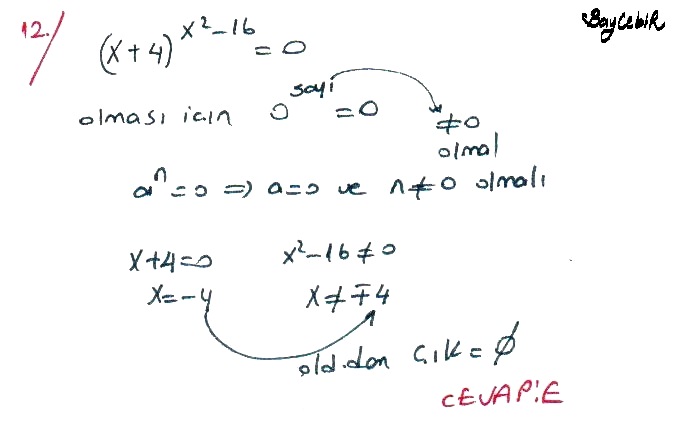 12./ (x+4)^{x²-16} = 0
BayCebiR
olması için 0^{sayı} = 0 ≠0
olmal
aⁿ=0 ⇒ a=0 ve n≠0 olmalı
x+4=0 x²-16≠0
x=-4 x≠∓4
old.dan Ç.K = ∅
CEVAP:E